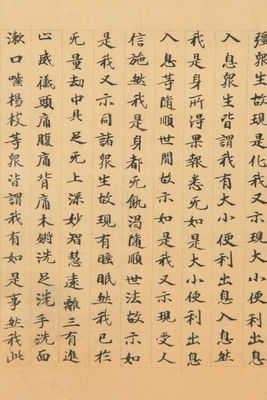 彊衆生故現是化我又示現大小便利出息
入息衆生皆謂我有大小便利出息入息然
我是身所得果報悉无如是大小便利出息
入息等隨順世間故示如是我又示現受人
信施然我是身都无飢渴隨順世法故示如
是我又示同諸衆生故現有睡眠然我已於
无量劫中具足无上深妙智慧遠離三有進
止威儀頭痛腹痛背痛木鏘洗足洗手洗面
漱口嚼楊枝等衆皆謂我有如是事然我此